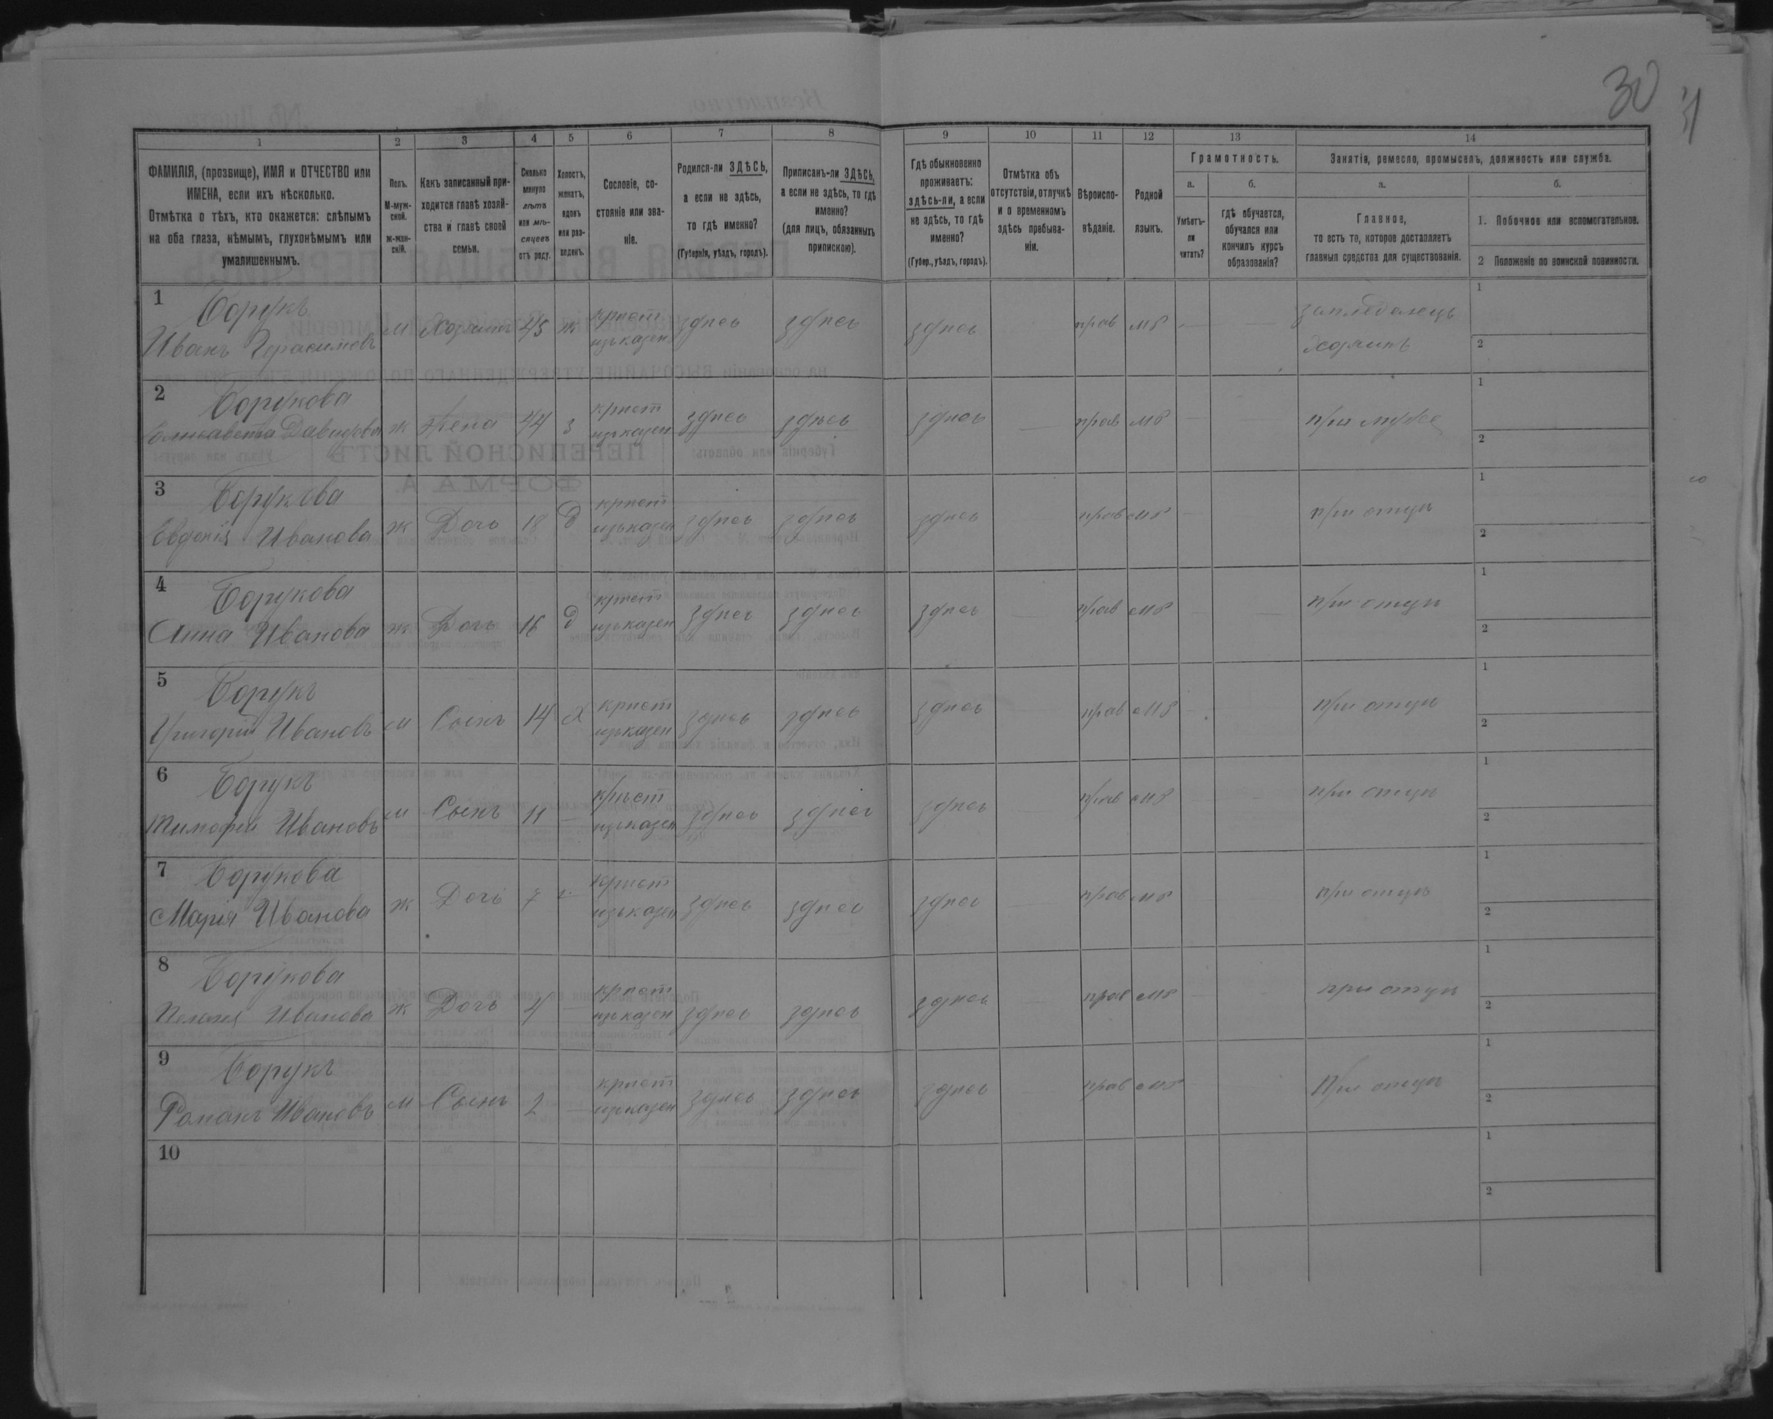 30
31
1
2
3
4
5
6
7
8
9
10
11
12
13
14
ФАМИЛІЯ, (прозвище), ИМЯ и ОТЧЕСТВО или
ИМЕНА, если ихъ нѣсколько.
Отмѣтка о тѣхъ, кто окажется: слѣпымъ
на оба глаза, нѣмымъ, глухонѣмымъ или
умалишеннымъ.
Полъ.
М-муж-
ской.
ж-жен-
скій.
Какъ записанный при-
ходится главѣ хозяй-
ства и главѣ своей
семьи.
Сколько
минуло
лѣтъ
или мѣ-
сяцевъ
отъ роду.
Холостъ,
женатъ,
вдовъ
или раз-
веденъ.
Сословіе, со-
стояніе или зва-
ніе.
Родился-ли ЗДѢСЬ,
а если не здѣсь,
то гдѣ именно?
(Губернія, уѣздъ, городъ).
Приписанъ-ли ЗДѢСЬ,
а если не здѣсь, то гдѣ
именно?
(для лицъ, обязанныхъ
припискою).
Гдѣ обыкновенно
проживаетъ:
здѣсь-ли, а если
не здѣсь, то гдѣ
именно?
(Губер., уѣздъ, городъ).
Отмѣтка объ
отсутствіи, отлучкѣ
и о временномъ
здѣсь пребыва-
ніи.
Вѣроиспо-
вѣданіе.
Родной
языкъ.
Грамотность.
а.
Умѣетъ-
ли
читать?
б.
гдѣ обучается,
обучался или
кончилъ курсъ
образованія?
Занятіе, ремесло, промыселъ, должность или служба.
а.
Главное,
то есть то, которое доставляетъ
главныя средства для существованія.
б.
1. Побочное или вспомогательное.
2 Положеніе по воинской повинности.
1 Борукъ
Иванъ Герасимовъ м Хозяинъ 45 ж крѣст изъ казен здѣсь здѣсь здѣсь — прав мр — — земледѣлецъ хозяинъ 1 2
2 Борукова
Елисавета Давидова ж Жена 44 з крѣст изъ казен здѣсь здѣсь здѣсь — прав мр — — при мужѣ 1 2
3 Борукова
Евгенія Иванова ж Дочь 18 д крѣст изъ казен здѣсь здѣсь здѣсь — прав мр — — при отцѣ 1 2
4 Борукова
Анна Иванова ж Дочь 16 д крѣст изъ казен здѣсь здѣсь здѣсь — прав мр — — при отцѣ 1 2
5 Борукъ
Григорій Ивановъ м Сынъ 14 х крѣст изъ казен здѣсь здѣсь здѣсь прав мр при отцѣ 1 2
6 Борукъ
Тимофей Ивановъ м Сынъ 11 — крѣст изъ казен здѣсь здѣсь здѣсь — прав мр — — при отцѣ 1 2
7 Борукова
Марія Иванова ж Дочь 7 крѣст изъ казен здѣсь здѣсь здѣсь — прав мр — — при отцѣ 1 2
8 Борукова
Иванова ж Дочь 4 — крѣст изъ казен здѣсь здѣсь здѣсь — прав мр — — при отцѣ 1 2
9 Борукъ
Романъ Ивановъ м Сынъ 2 — крѣст изъ казен здѣсь здѣсь здѣсь — прав мр — — При отцѣ 1 2
10 1 2